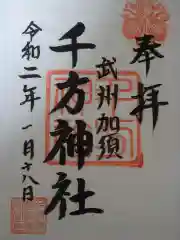 奉拝
武州加須
千方神社
令和二年一月十八日